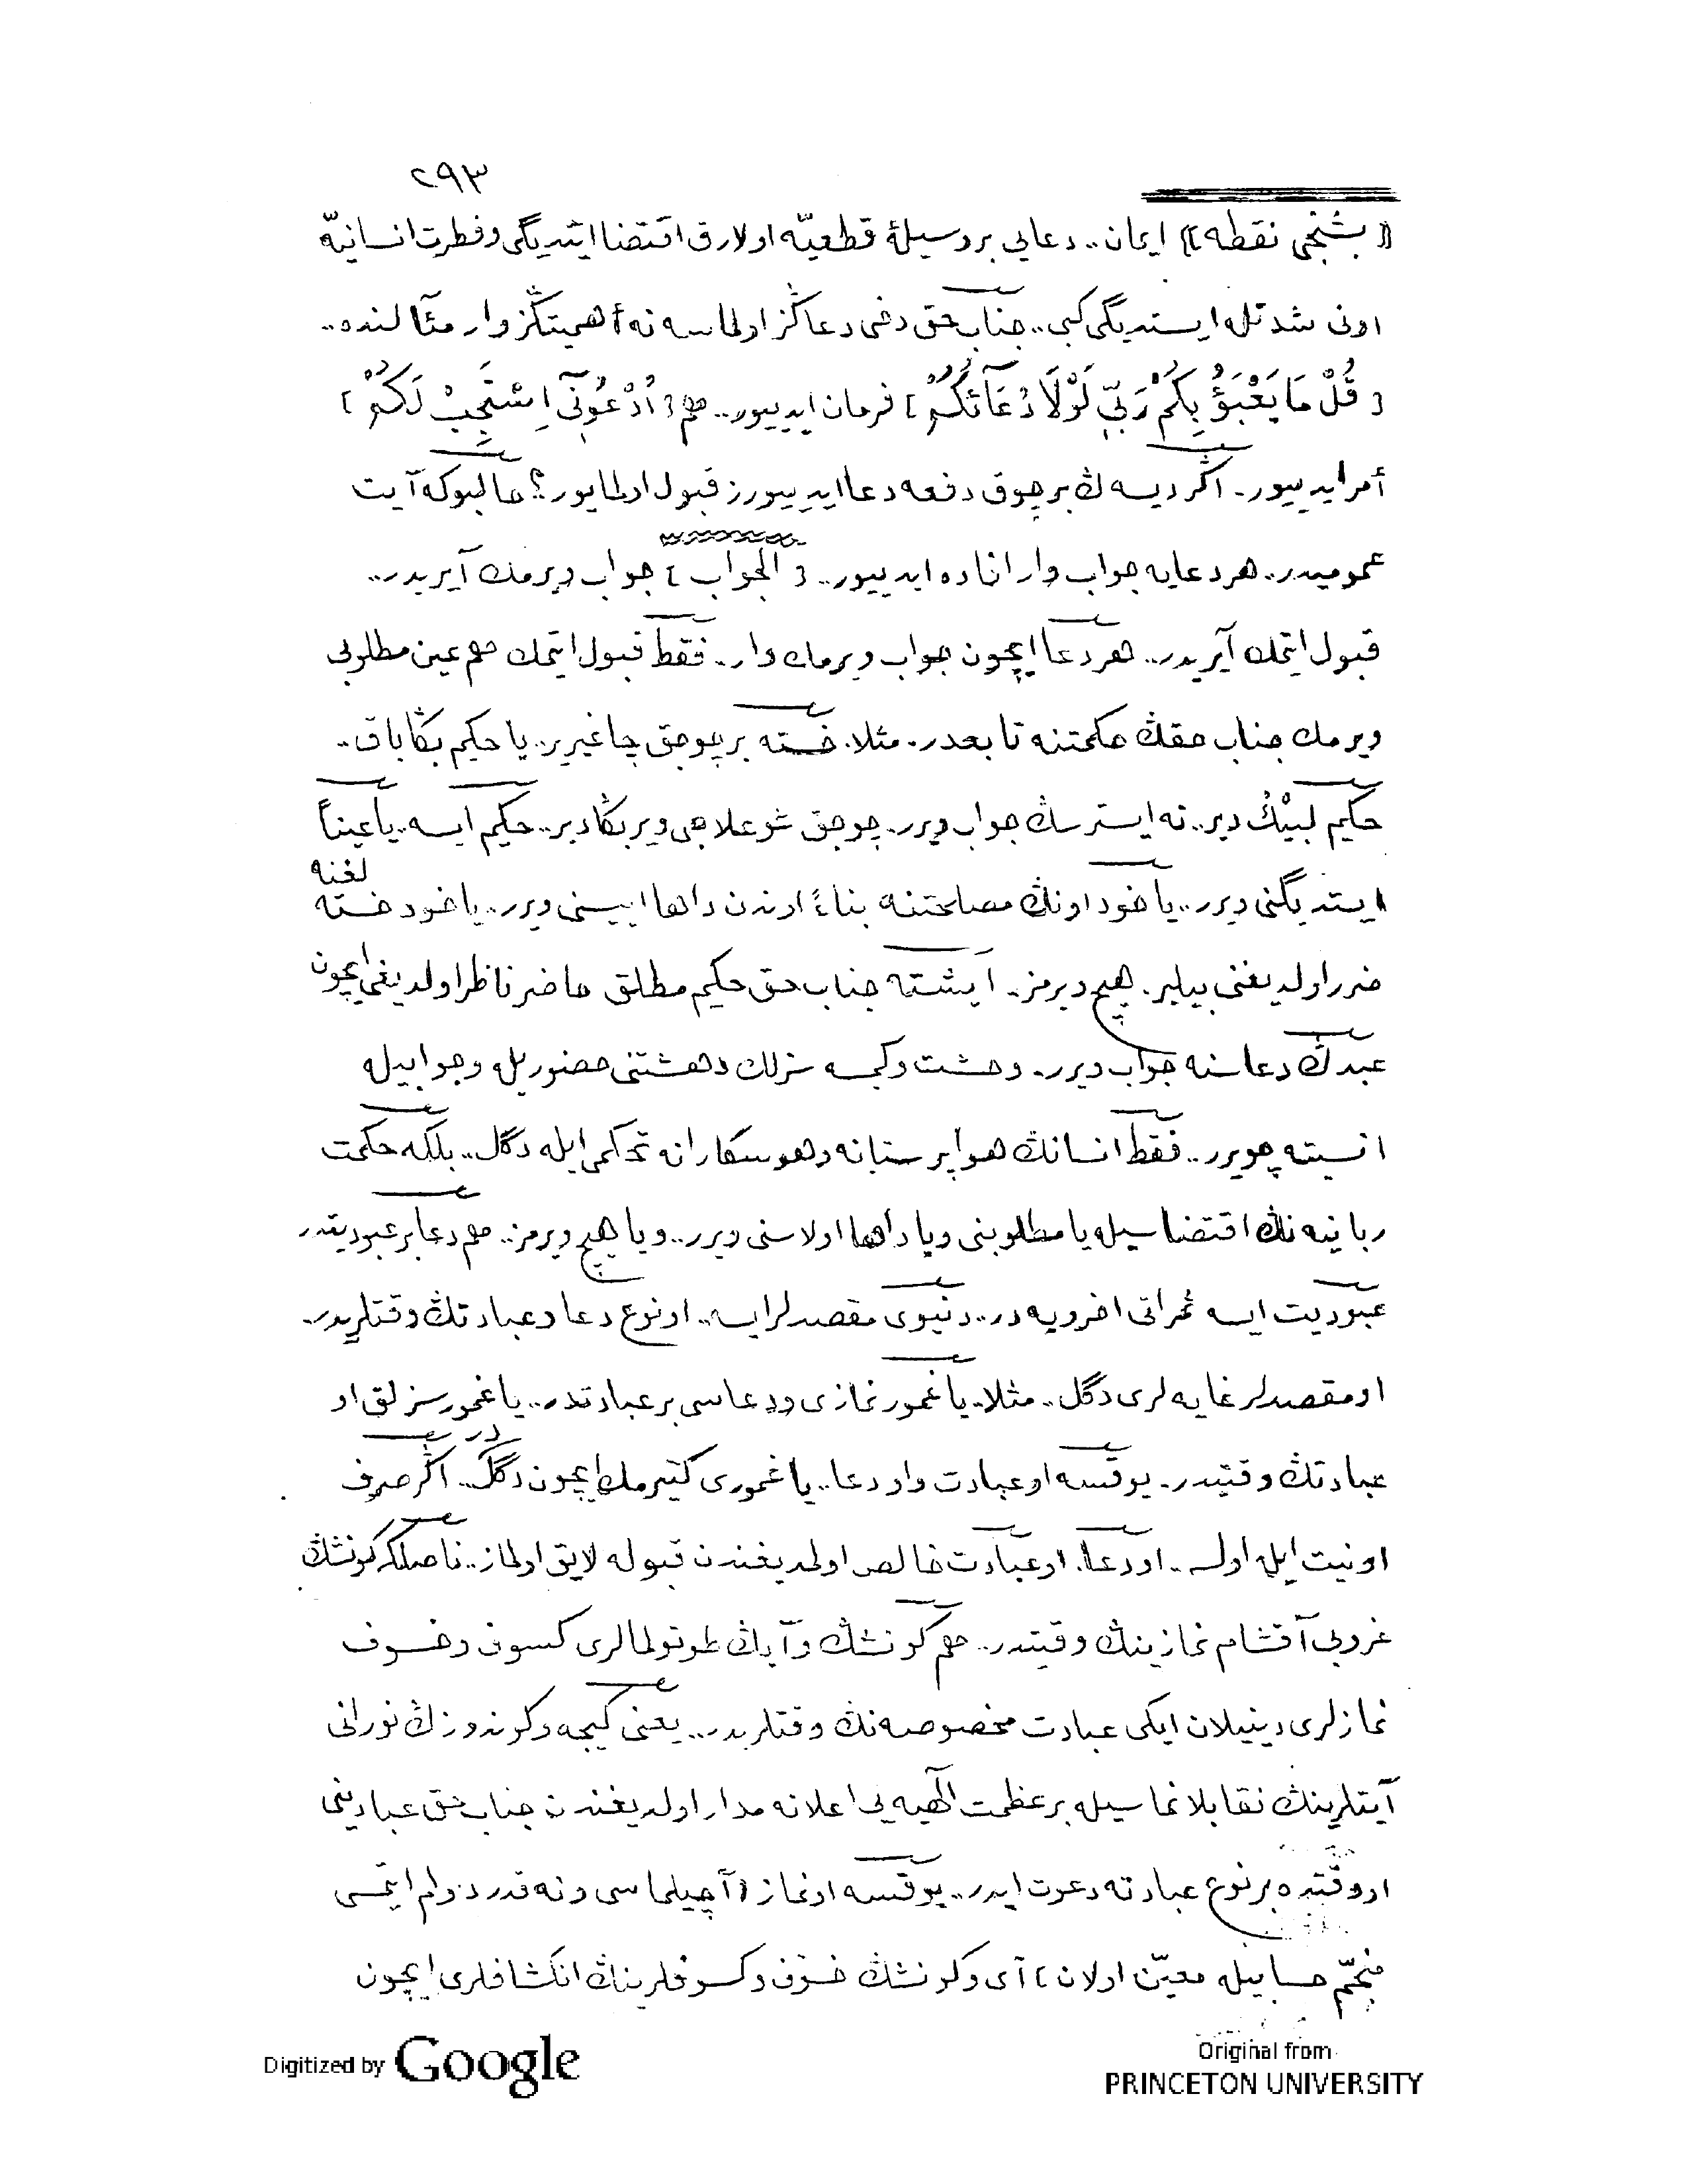 ٢٩٣
⟪ بشنجی نقطه ⟫ ایمان.. دعایی بر وسیلهٔ قطعیّه اولارق اقتضا ایتدیگی وفطرت انسانیّه
اونی شدتله ایستدیگی کبی.. جناب حق دخی دعاڭز اولماسه نه أهمیتڭز وار مئآلنده..
[ قُلْ مَا يَعْبَؤُ بِكُمْ رَبّ۪ي لَوْلَا دُعَآئُكُمْ ] فرمان ایدییور.. هم [ اُدْعُون۪ٓي اَسْتَجِبْ لَكُمْ ]
أمر ایدییور. اگر دیسه ڭ بر چوق دفعه دعا ایدییورز قبول اولمایور؟ حالبوکه آیت
عمومیدر.. هر دعایه جواب وار افاده ایدییور.. [ الجواب ] جواب ویرمك آیریدر..
قبول ایتمك آیریدر.. هر دعا ایچون جواب ویرمك وار.. فقط قبول ایتمك هم عین مطلوبی
ویرمك جناب حقڭ حکمتنه تابعدر. مثلا. خسته بر چوجق چاغیریر. یا حکیم بڭا باق..
حکیم لبیْكْ دیر.. نه ایسترسڭ جواب ویرر. چوجق شو علاجی ویر بڭا دیر.. حکیم ایسه.. یا عیناً
ایستدیگنی ویرر.. یاخود اونڭ مصلحتنه بناءً اوندن داها اییسنی ویرر.. یاخود خسته لغنه
ضرر اولدیغنی بیلیر. هیچ ویرمز. ایشته جناب حق حکیم مطلق حاضر ناظر اولدیغی ایچون
عبدڭ دعاسنه جواب ویرر. وحشت وکمسه سزلك دهشتنی حضوریله وجوابیله
انسیته چویرر.. فقط انسانڭ هواپرستانه وهوسکارانه تحکمی ایله دگل.. بلکه حکمت
ربانیه نڭ اقتضاسیله یا مطلوبنی ویا داها اولاسنی ویرر.. ویا هیچ ویرمز.. هم دعا بر عبودیتدر
عبودیت ایسه ثمراتی اخرویه در.. دنیوی مقصدلر ایسه.. او نوع دعا وعبادتڭ وقتلریدر.
او مقصدلر غایه لری دگل.. مثلا. یاغمور نمازی ودعاسی بر عبادتدر.. یاغمورسزلق او
عبادتڭ وقتیدر. یوقسه او عبادت واو دعا.. یاغموری کتیرمك ایچون دگلدر.. اگر صرف
او نیت ایله اولسه.. او دعا. او عبادت خالص اولمدیغندن قبوله لایق اولماز.. ناصلکه کونشڭ
غروبی آقشام نمازینڭ وقتیدر.. هم کونشڭ وآیڭ طوتولمالری کسوف وخسوف
نمازلری دینیلان ایکی عبادت مخصوصه نڭ وقتلریدر.. یعنی کیجه وکوندوزڭ نورانی
آیتلرینڭ نقابلانماسیله بر عظمت الٓهیه یی اعلانه مدار اولدیغندن جناب حق عبادینی
او وقتده بر نوع عبادته دعوت ایدر.. یوقسه او نماز ( آچیلماسی ونه قدر دوام ایتمسی
منجّم حسابیله معیّن اولان ) آی وکونشڭ خسوف وکسوفلرینڭ انکشافلری ایچون
Digitized by Google
Original from
PRINCETON UNIVERSITY